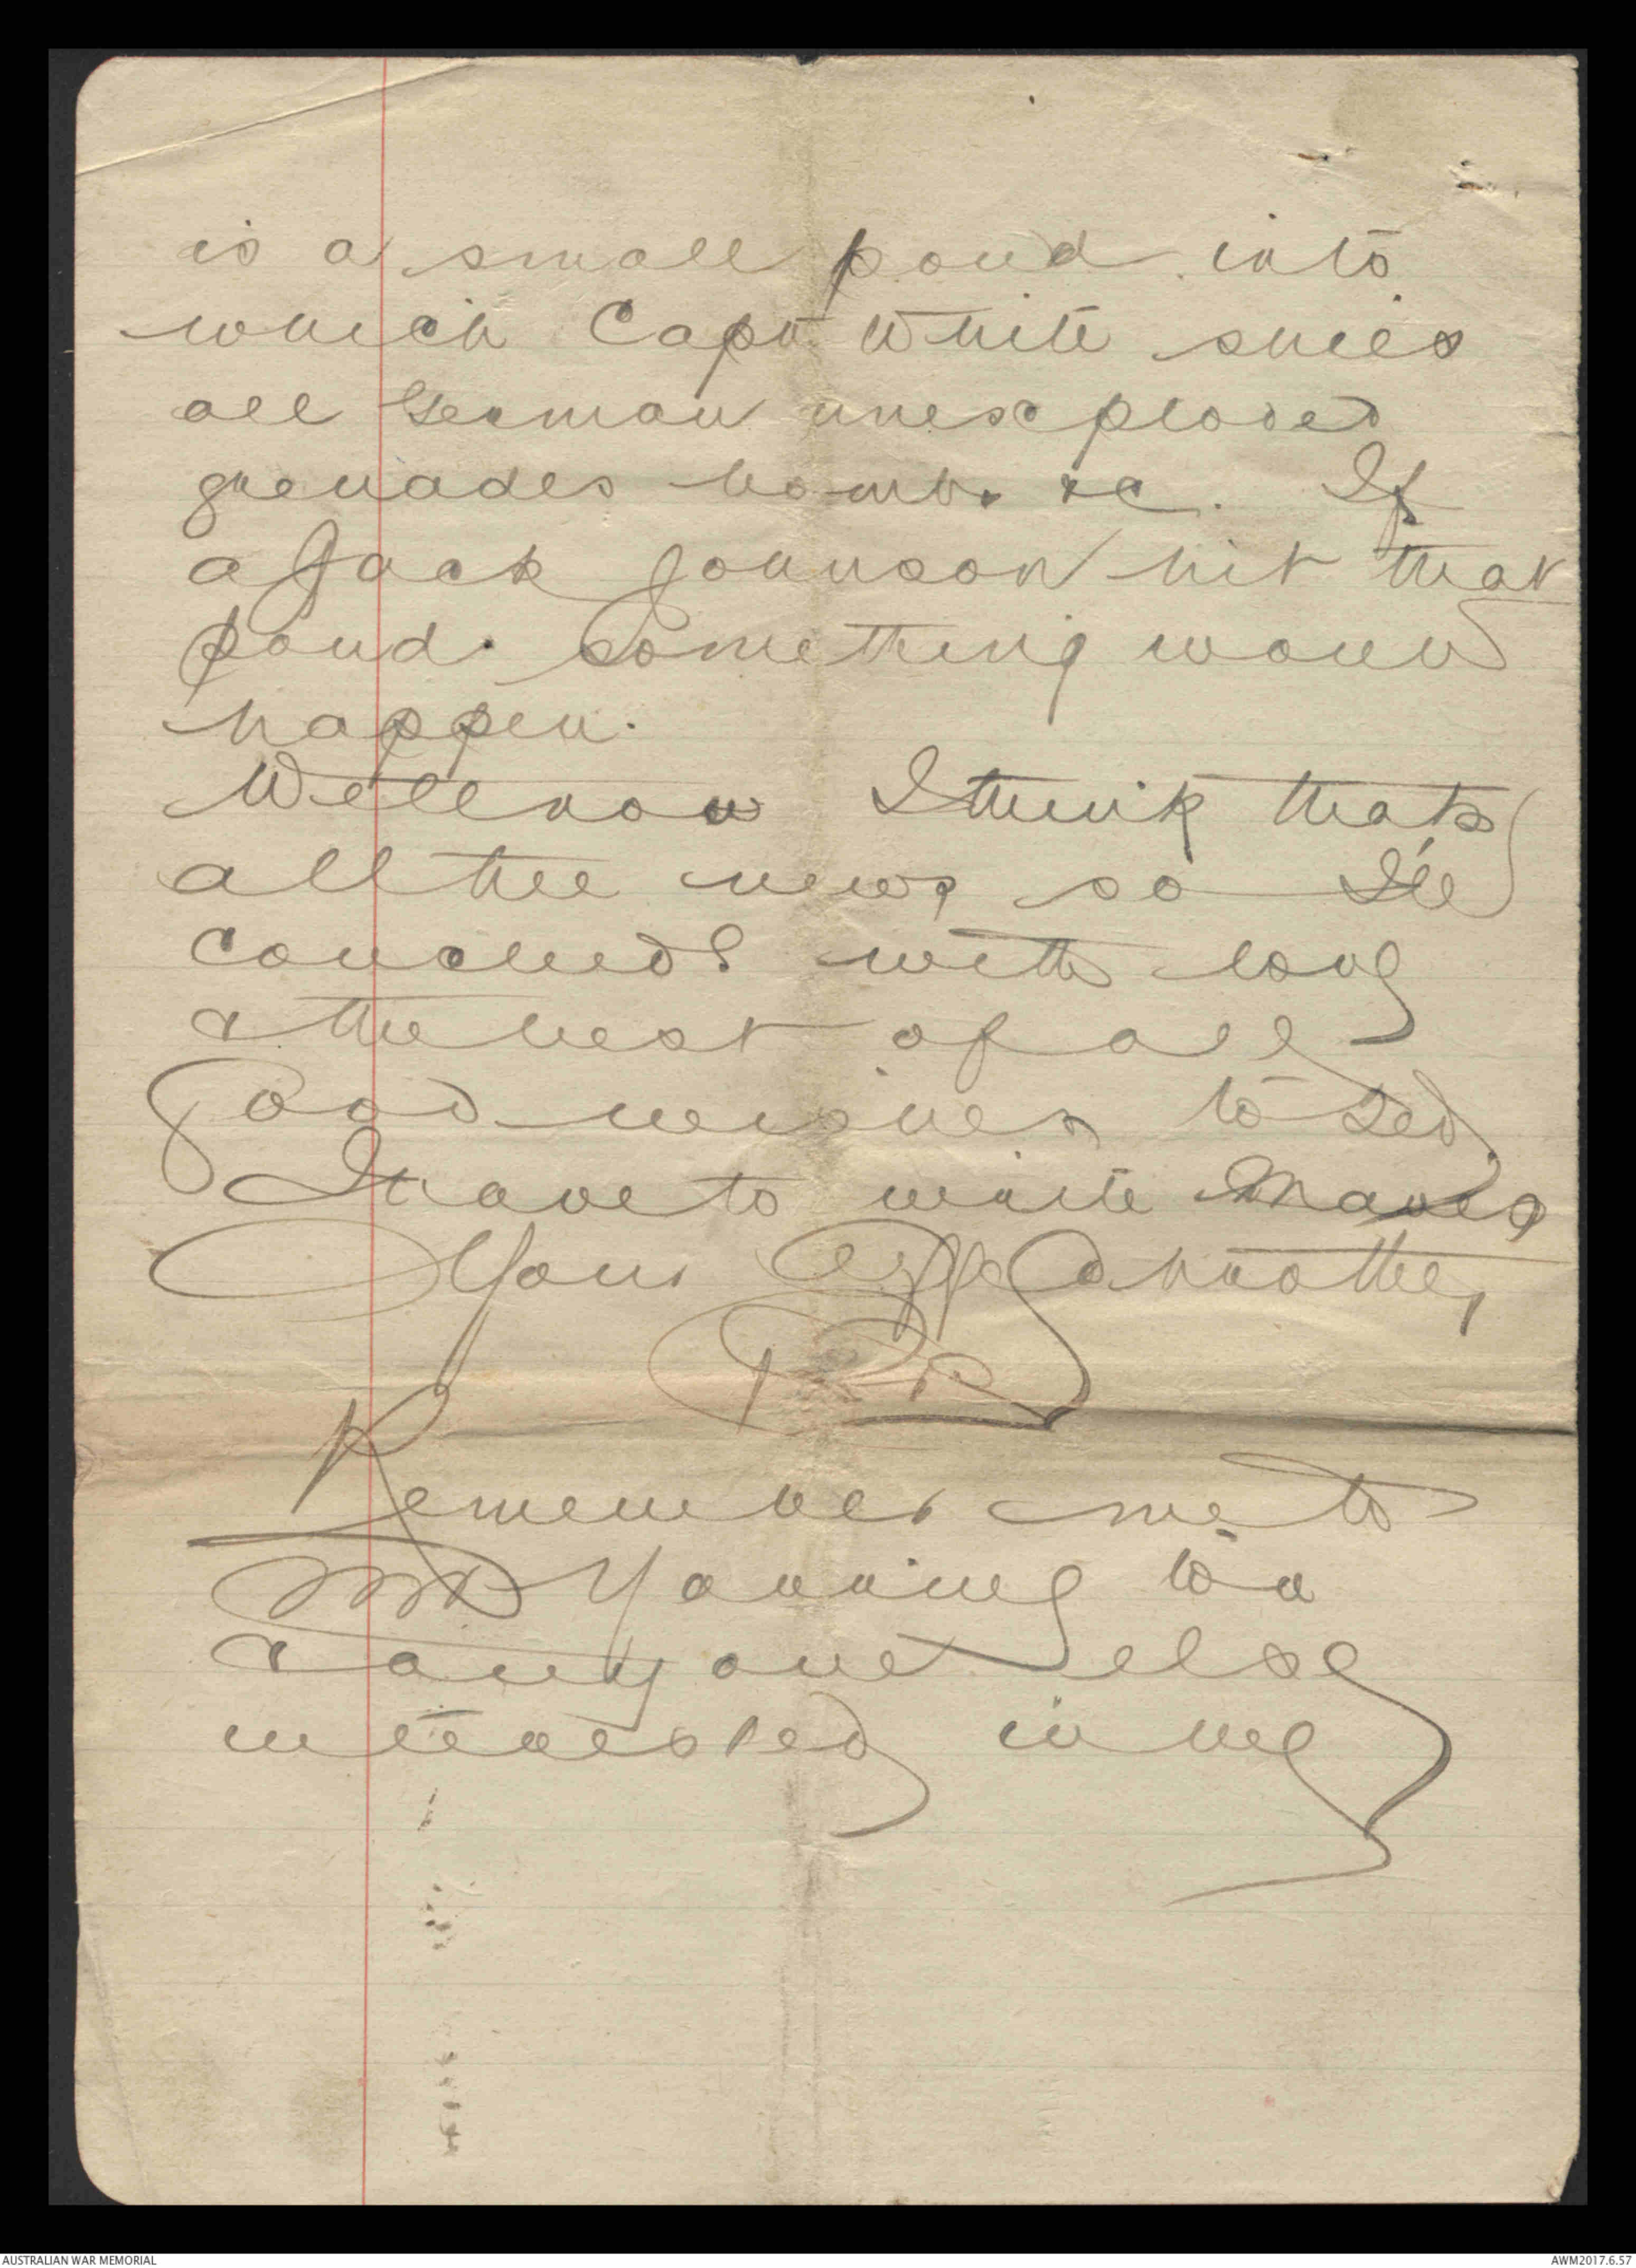 is a small pond into
which Capt White shies
all German unexploded
grenades bombs &c. If
a Jack Johnson hit that
pond. Something would
happen.
Well now I think thats
all the news so I'll
conclude with love
& the best of all
good wishes to Ted.
I have to write Mavis
Your Affec brother
Remember me to
Mr Young too
& anyone else
interested in me
AUSTRALIAN WAR MEMORIAL
AWM2017.6.57